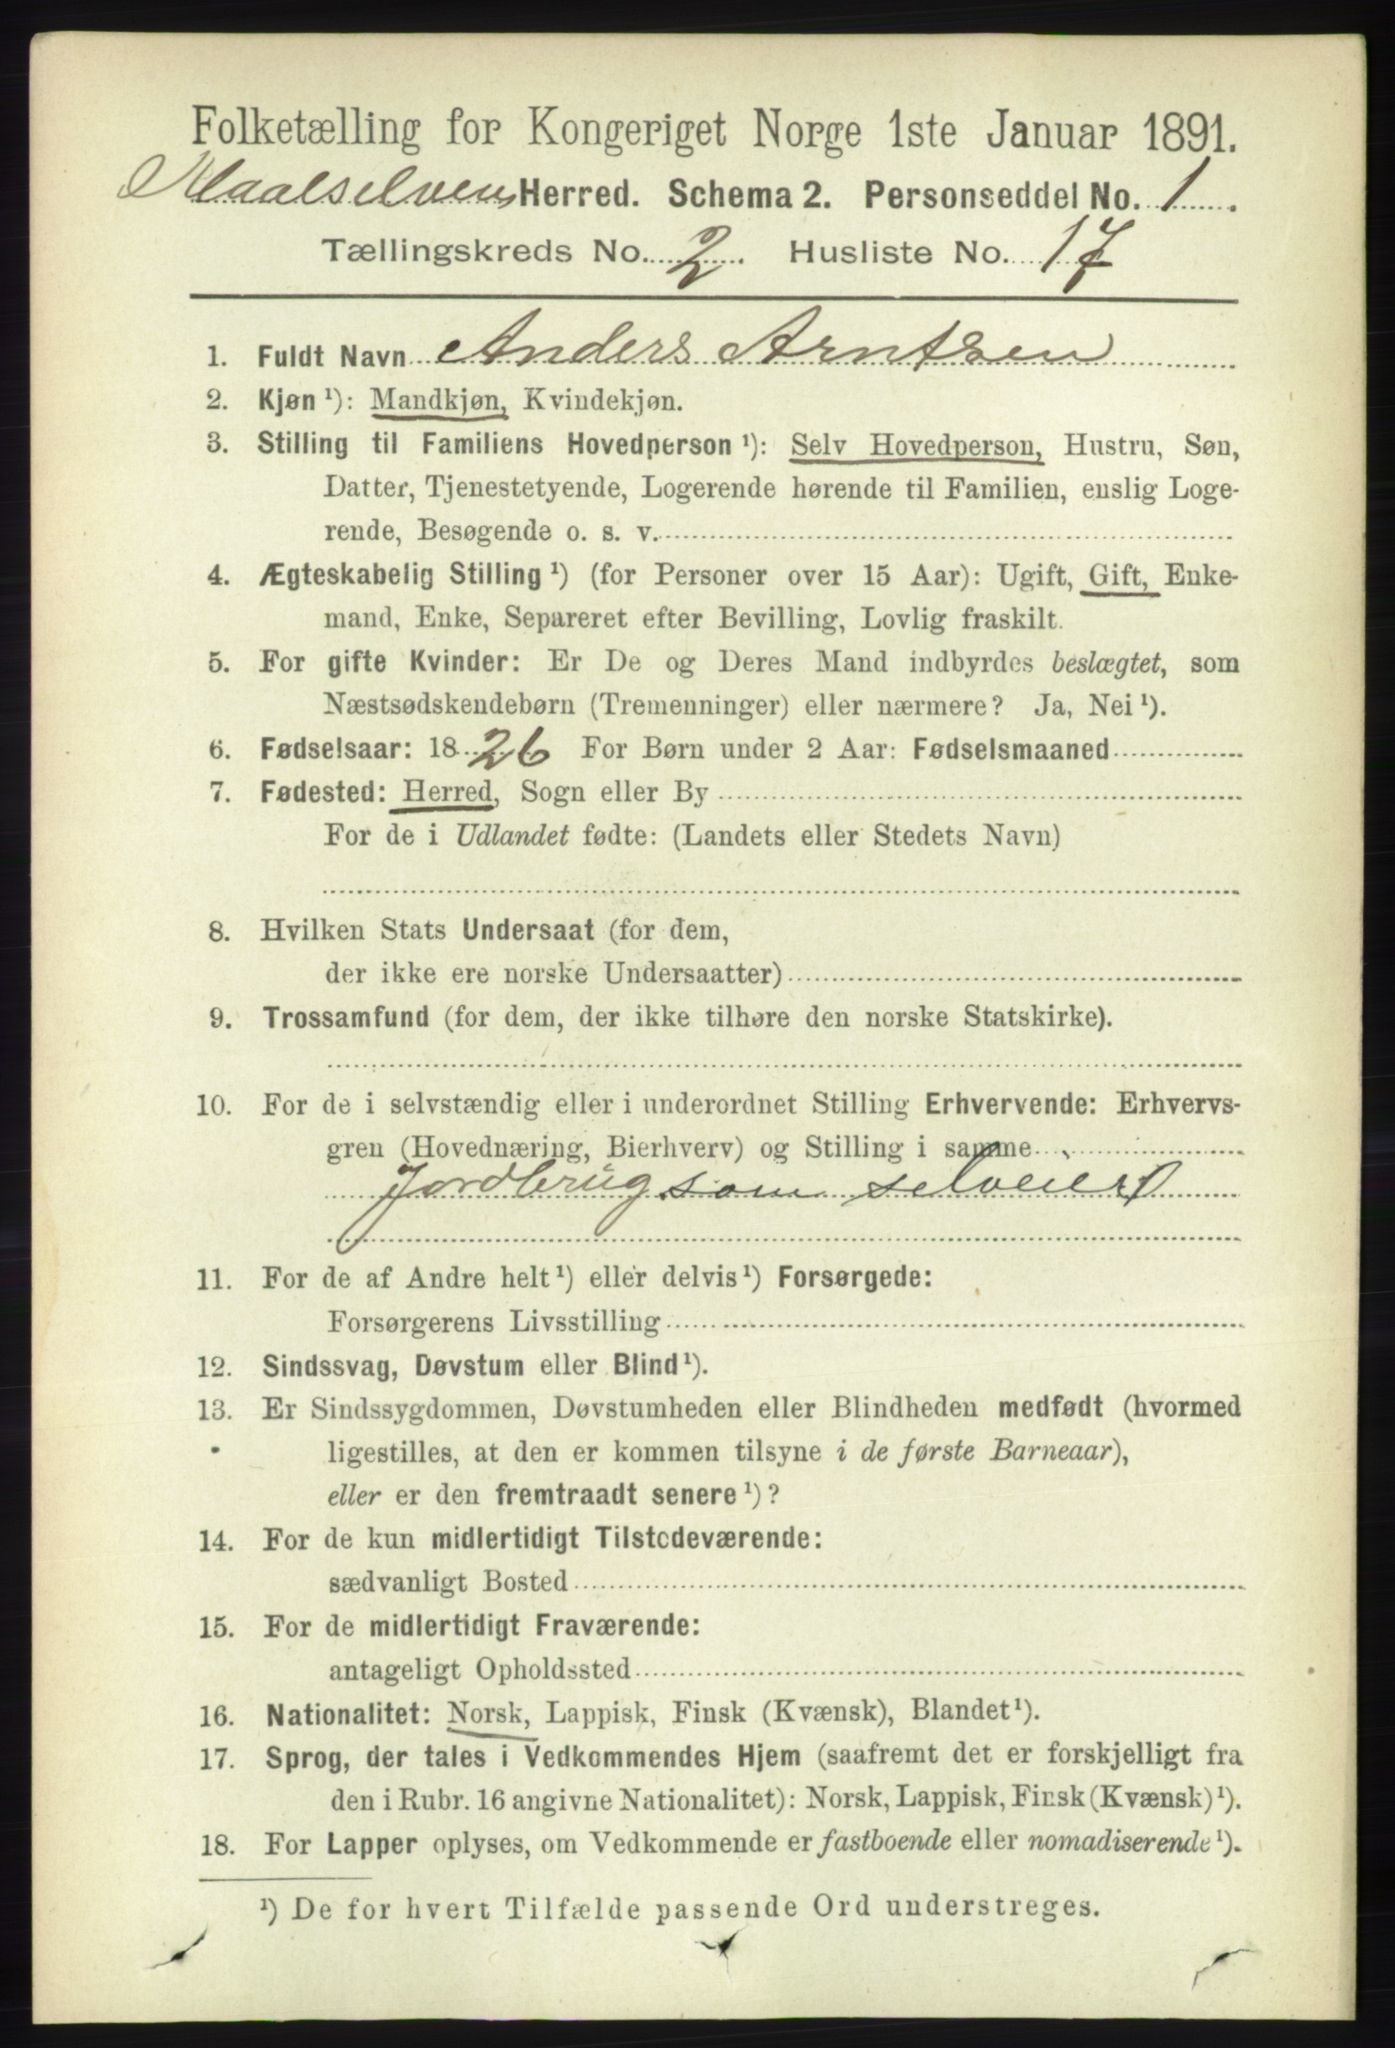 Folketælling for Kongeriget Norge 1ste Januar 1891.
Maalselven Herred. Schema 2. Personseddel No. 1.
Tællingskreds No. 2. Husliste No. 17
1. Fuldt Navn Anders Arntsen
2. Kjøn ¹): Mandkjøn, Kvindekjøn.
3. Stilling til Familiens Hovedperson ¹): Selv Hovedperson, Hustru, Søn,
Datter, Tjenestetyende, Logerende hørende til Familien, enslig Loge-
rende, Besøgende o. s. v.
4. Ægteskabelig Stilling ¹) (for Personer over 15 Aar): Ugift, Gift, Enke-
mand, Enke, Separeret efter Bevilling, Lovlig fraskilt.
5. For gifte Kvinder: Er De og Deres Mand indbyrdes beslægtet, som
Næstsødskendebørn (Tremenninger) eller nærmere? Ja, Nei ¹).
6. Fødselsaar: 1826 For Børn under 2 Aar: Fødselsmaaned
7. Fødested: Herred, Sogn eller By
For de i Udlandet fødte: (Landets eller Stedets Navn)
8. Hvilken Stats Undersaat (for dem,
der ikke ere norske Undersaatter)
9. Trossamfund (for dem, der ikke tilhøre den norske Statskirke).
10. For de i selvstændig eller i underordnet Stilling Erhvervende: Erhvervs-
gren (Hovednæring, Bierhverv) og Stilling i samme
Jordbrug som selveier
11. For de af Andre helt ¹) eller delvis ¹) Forsørgede:
Forsørgerens Livsstilling
12. Sindssvag, Døvstum eller Blind ¹).
13. Er Sindssygdommen, Døvstumheden eller Blindheden medfødt (hvormed
ligestilles, at den er kommen tilsyne i de første Barneaar),
eller er den fremtraadt senere ¹)?
14. For de kun midlertidigt Tilstedeværende:
sædvanligt Bosted
15. For de midlertidigt Fraværende:
antageligt Opholdssted
16. Nationalitet: Norsk, Lappisk, Finsk (Kvænsk), Blandet ¹).
17. Sprog, der tales i Vedkommendes Hjem (saafremt det er forskjelligt fra
den i Rubr. 16 angivne Nationalitet): Norsk, Lappisk, Finsk (Kvænsk) ¹).
18. For Lapper oplyses, om Vedkommende er fastboende eller nomadiserende ¹).
¹) De for hvert Tilfælde passende Ord understreges.